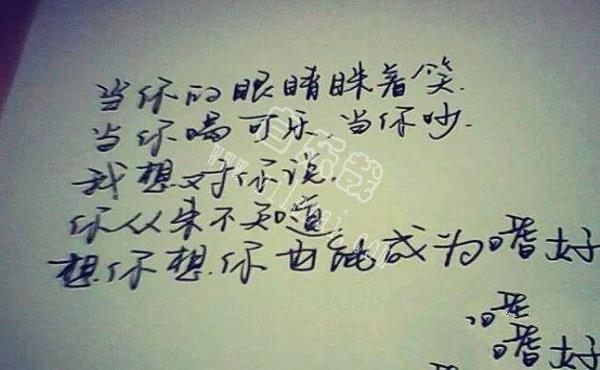 当你的眼睛眯着笑.
当你喝可乐.当你吵.
我想对你说.
你从来不知道.
想你想你也能成为嗜好
嗜好